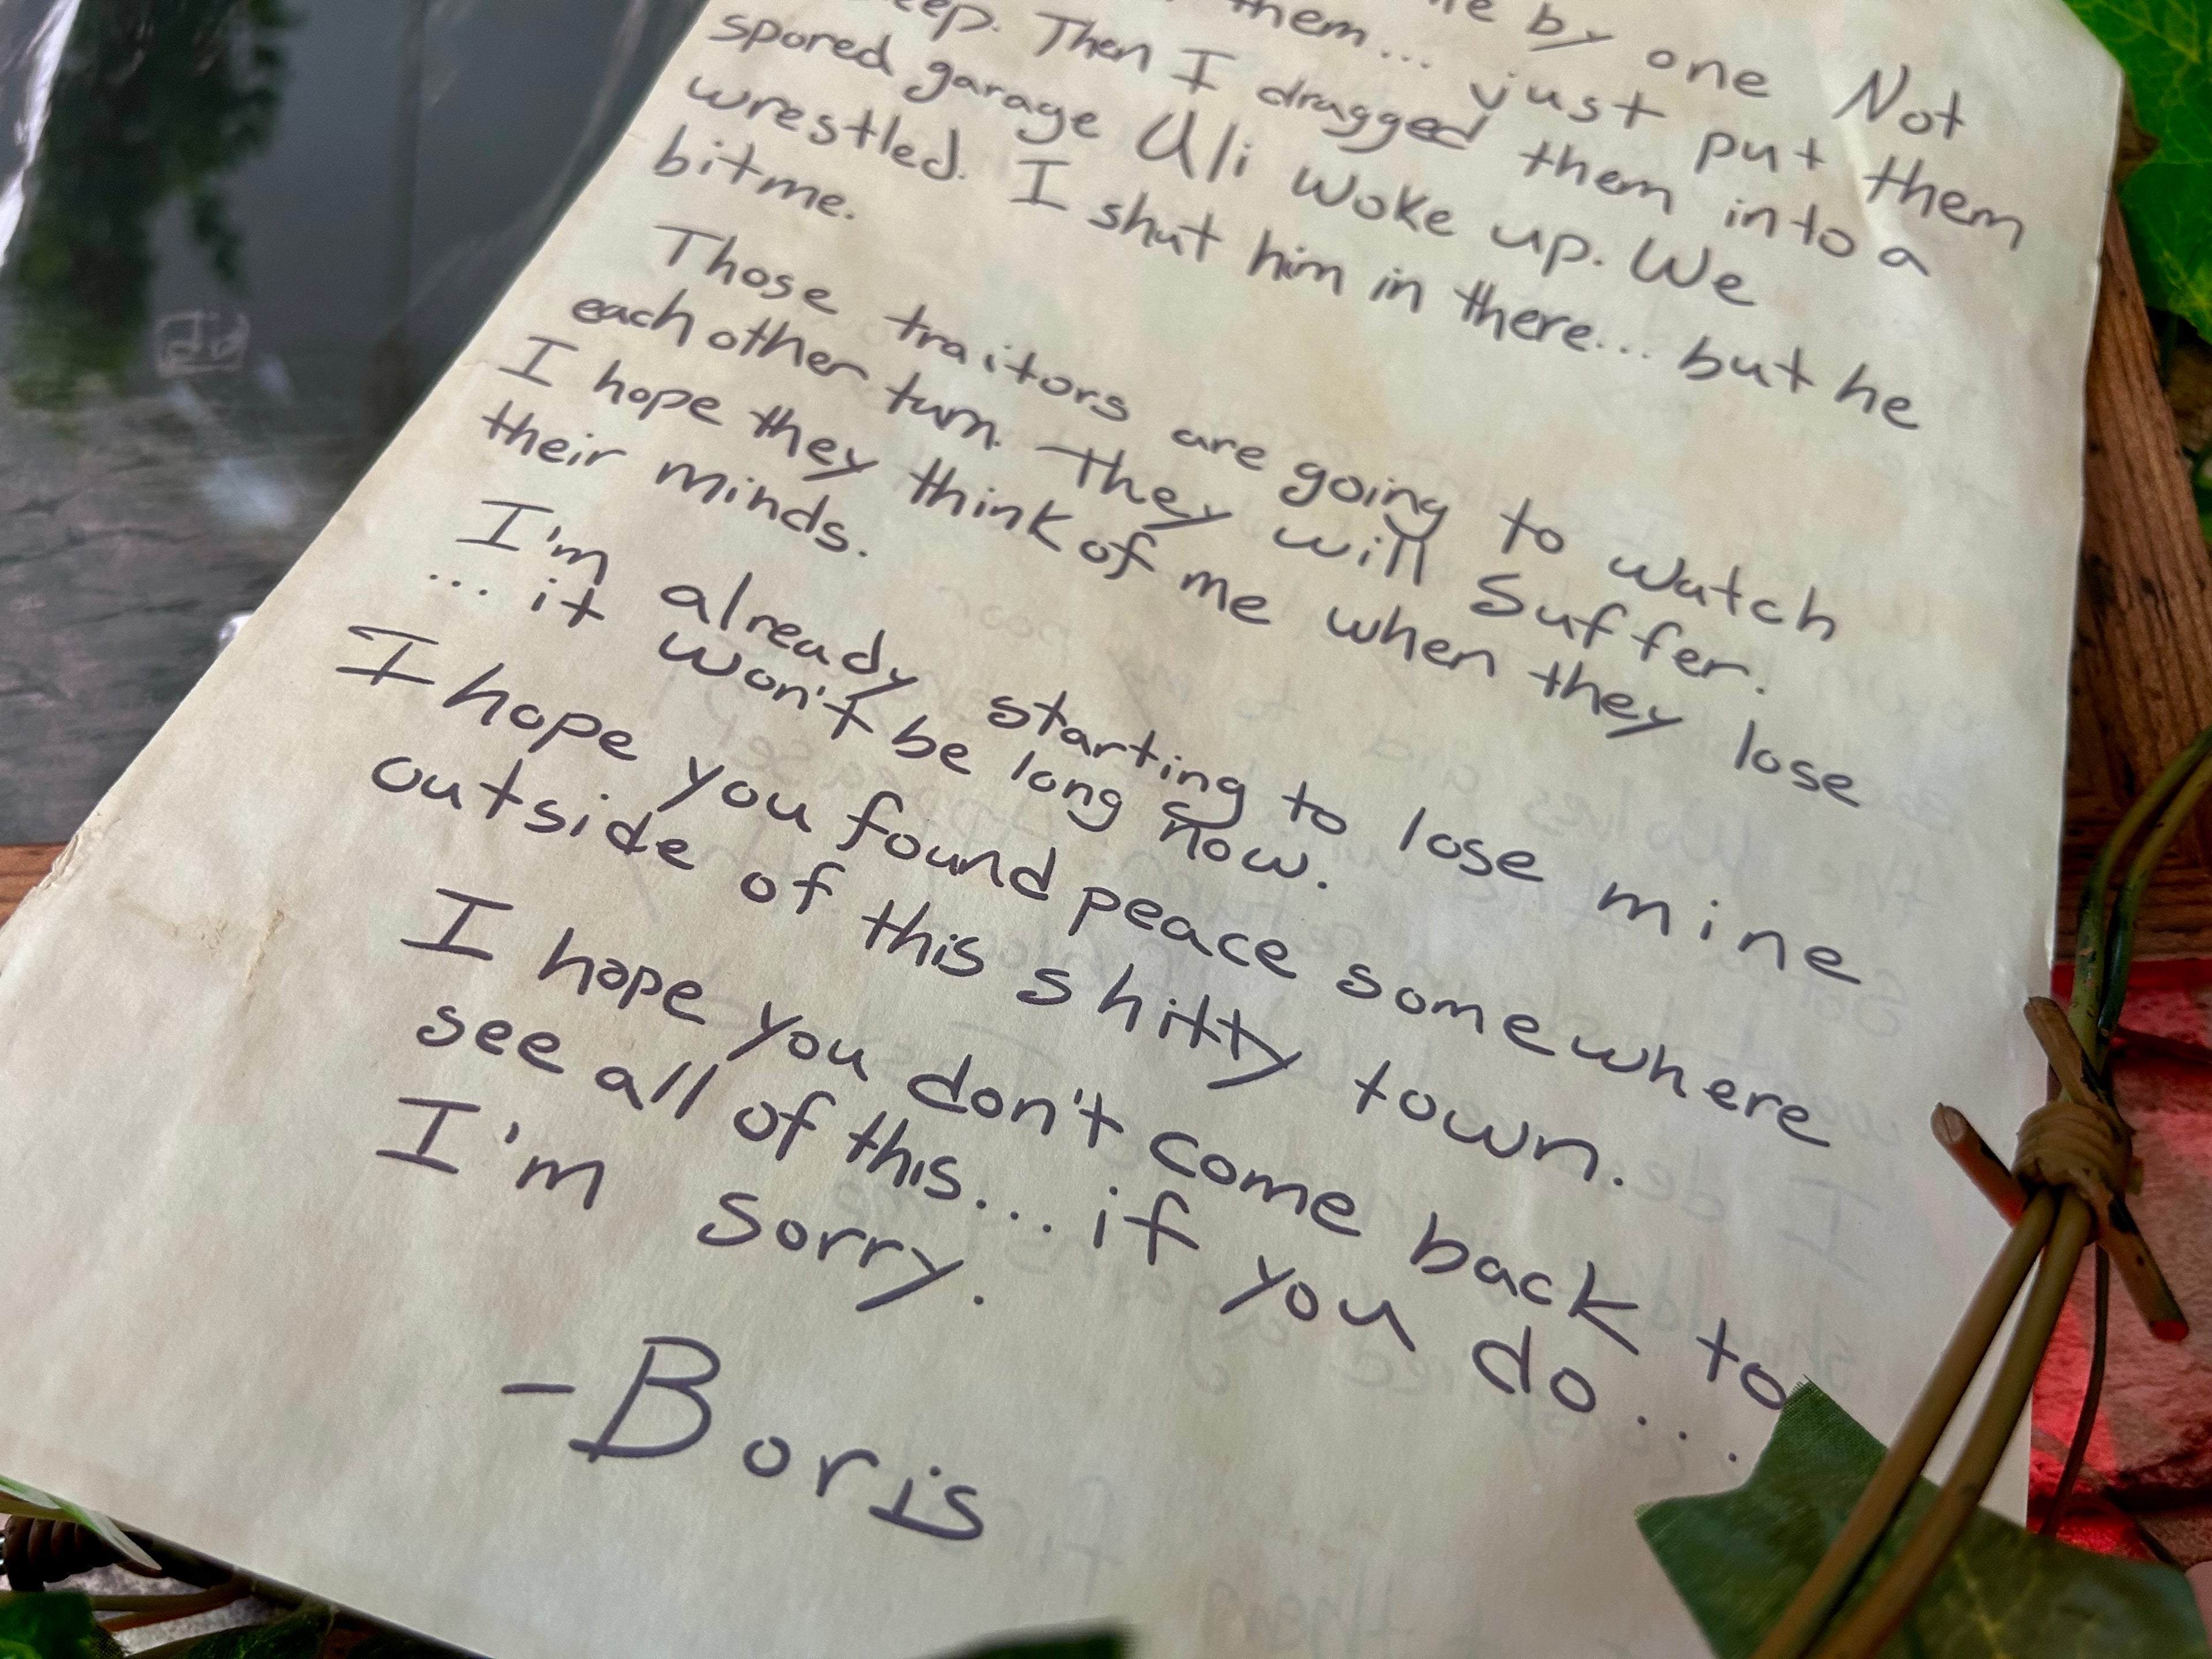 by one Not
them... just put them
Then I dragged them into a
spored garage Uli woke up. We
wrestled. I shut him in there... but he
bit me.
Those traitors are going to watch
each other turn. They will suffer.
I hope they think of me when they lose
their minds.
I'm already starting to lose mine
... it won't be long now.
I hope you found peace somewhere
outside of this shitty town.
I hope you don't come back to
see all of this... if you do...
I'm sorry.
-Boris